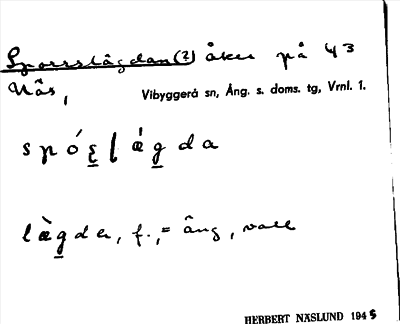 Sporrslägdan (2) åker på 43
Näs,
Vibyggerå sn, Ång. s. doms. tg, Vrnl. 1.
lægder, f., = äng, vall
HERBERT NÄSLUND 1945